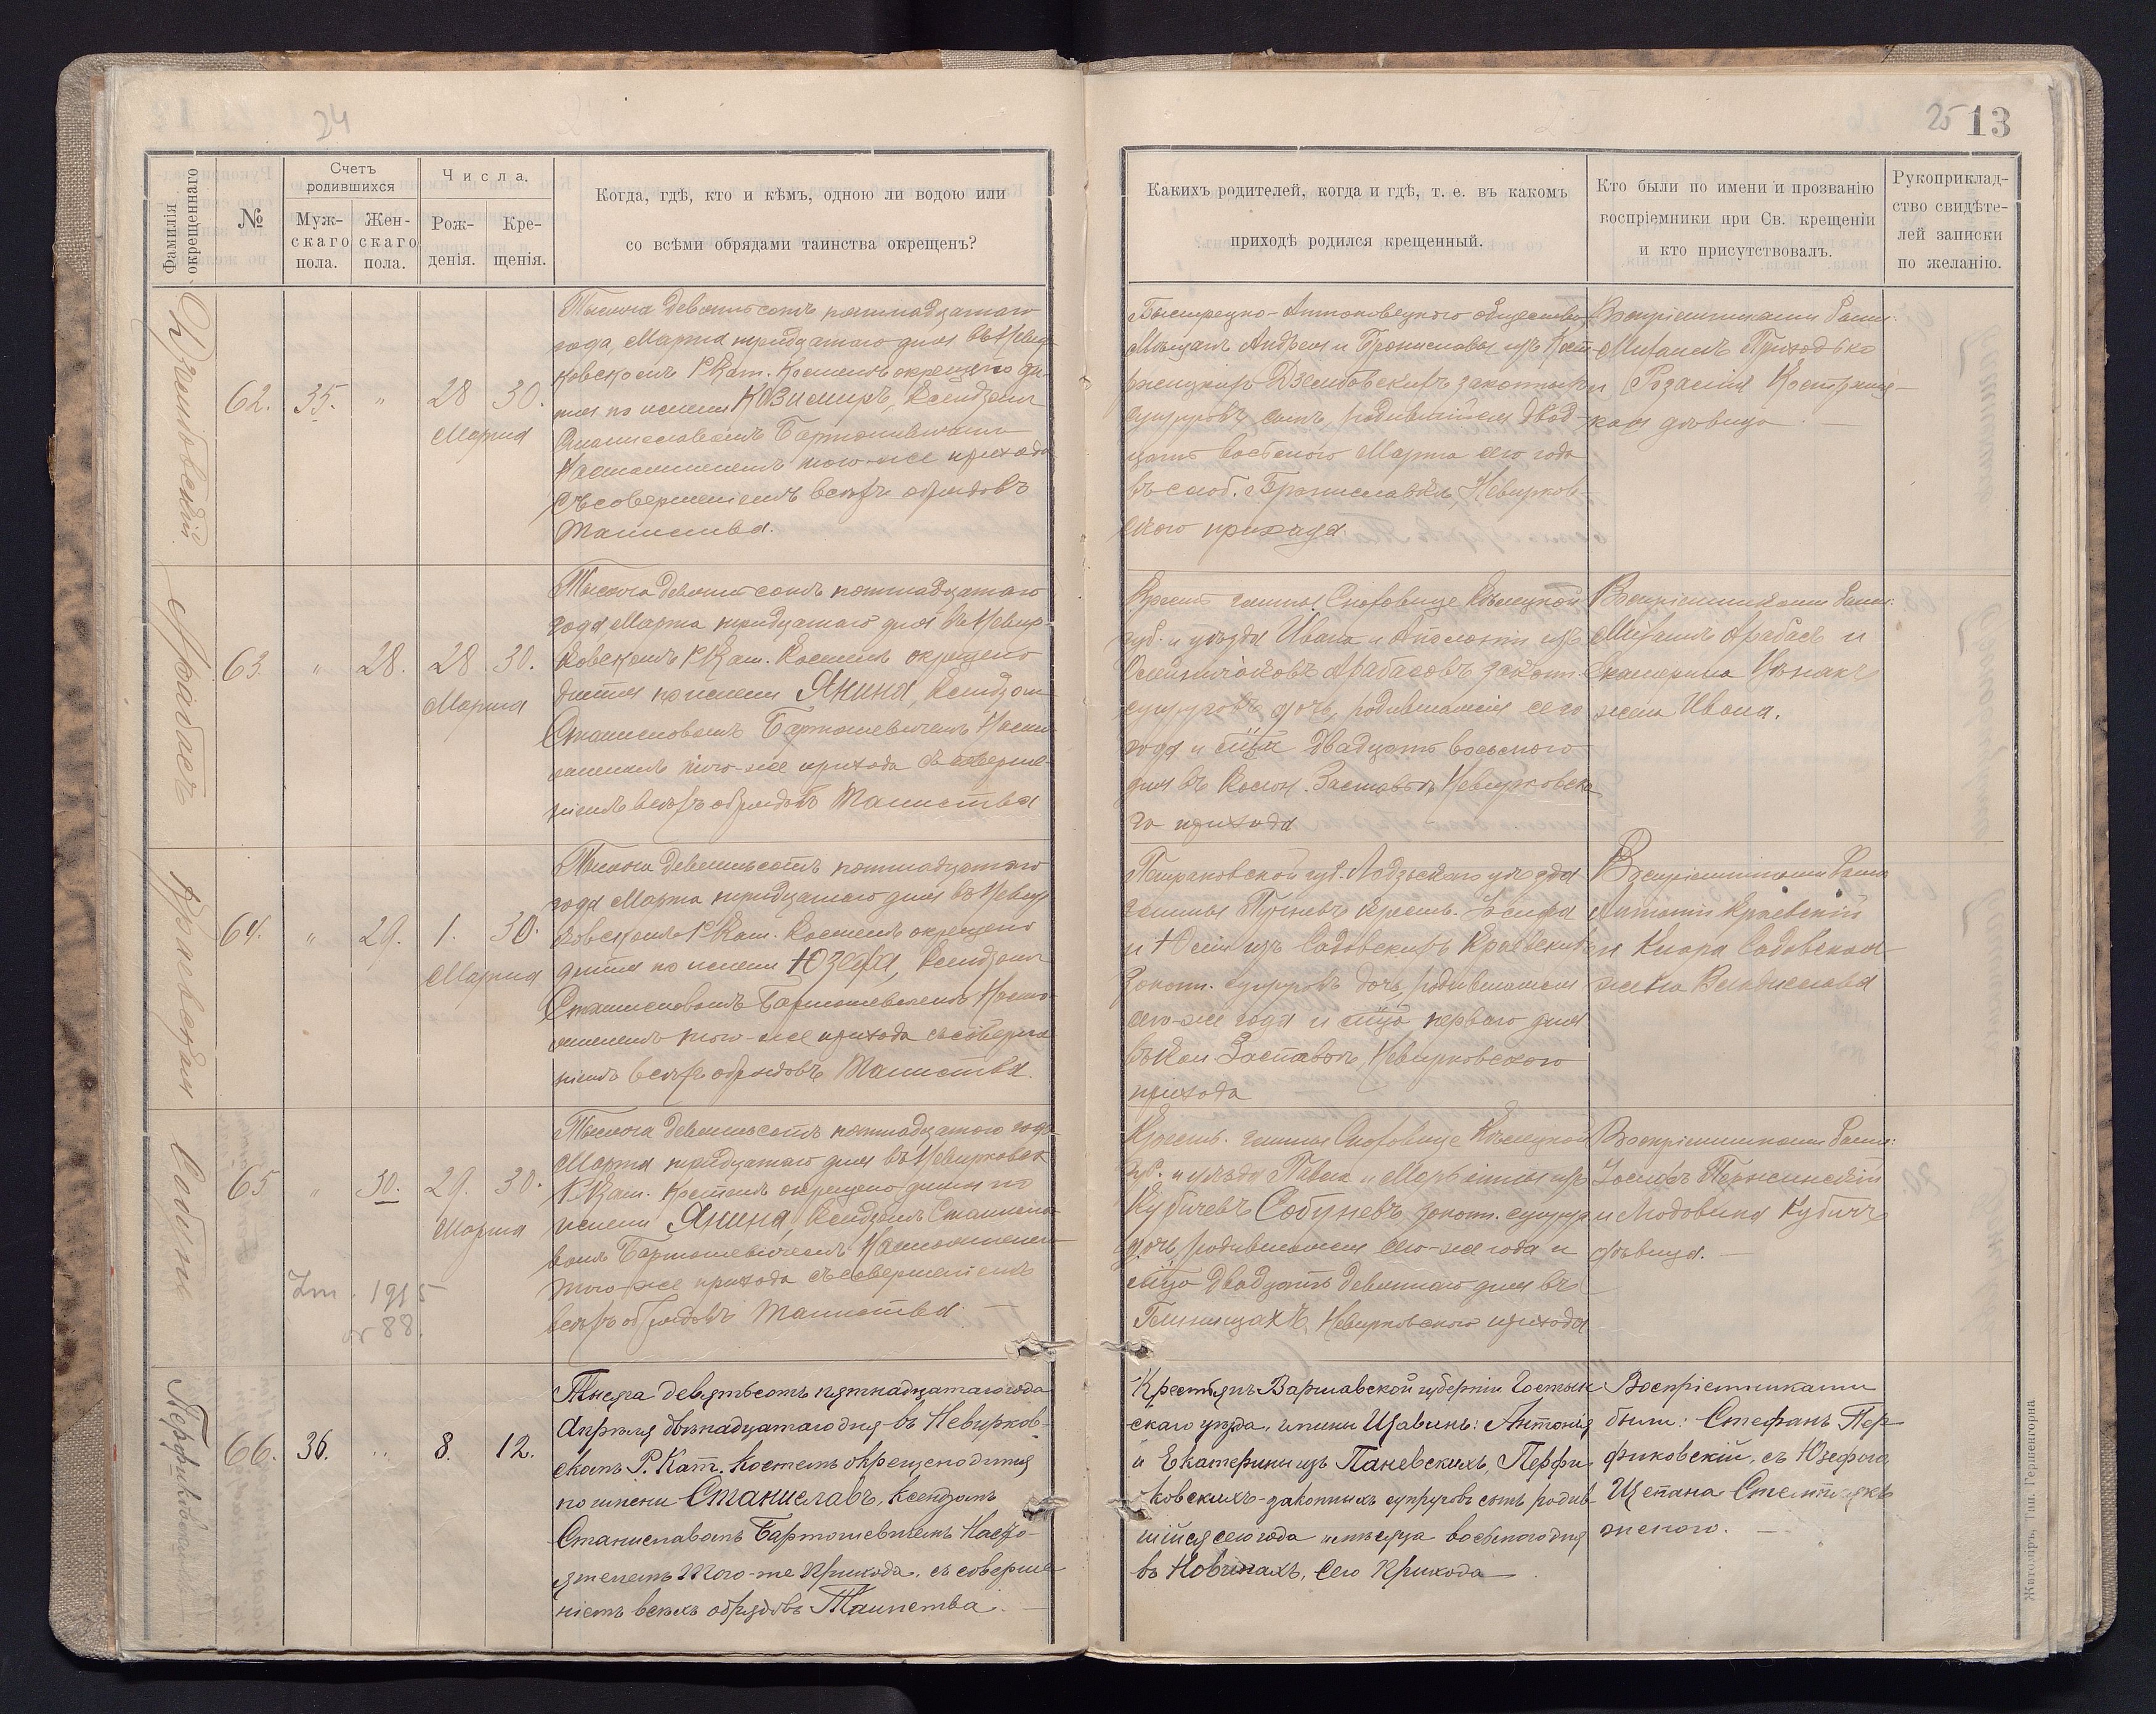 24
25 13
Фамилія окрещеннаго
№
Счетъ родившихся
Муж-скаго пола.
Жен-скаго пола.
Числа.
Рож-денія.
Кре-щенія.
Когда, гдѣ, кто и кѣмъ, одною ли водою или
со всѣми обрядами таинства окрещенъ?
Какихъ родителей, когда и гдѣ, т. е. въ какомъ
приходѣ родился крещенный.
Кто были по имени и прозванію
воспріемники при Св. крещеніи
и кто присутствовалъ.
Рукоприклад-
ство свидѣте-
лей записки
по желанію.
62. 35. " 28 30.
Марта
Тысяча девятьсотъ пятнадцатаго
года, Марта тридцатаго дня въ Невир-
ковскомъ Р. Кат. Костелѣ окрещено ди-
тя по имени Казимиръ, Ксендзомъ
Станиславомъ Бартошевичемъ
Настоятелемъ того-же прихода
съ совершеніемъ всѣхъ обрядовъ
Таинства.
Мѣщанъ Андрея и Брониславы изъ
супруговъ сынъ, родившійся двад-
цать восьмого Марта сего года
въ слоб. Брониславка, Невирков-
скаго прихода.
Воспріемниками были:
Михаилъ Приходько
и Розалія
кая дѣвица. —
Арабасъ
63. " 28. 28. 30.
Марта
Тысяча девятьсотъ пятнадцатаго
года Марта тридцатаго дня въ Невир-
ковскомъ Р. Кат. Костелѣ окрещено
дитя по имени Янина, Ксендзомъ
Станиславомъ Бартошевичемъ Насто-
ятелемъ того-же прихода съ соверше-
ніемъ всѣхъ обрядовъ Таинства
Крест. гмины Сноховице Кѣлецкой
губ. и уѣзда Ивана и Аполоніи изъ
Арабасовъ законн.
супруговъ дочь, родившаяся сего
года и мѣсяца двадцать восьмого
дня въ Колон. Заставье Невирковска-
го прихода
Воспріемниками были:
Михаилъ Арабасъ и
Екатерина
жена Ивана.
Краевская
64. " 29. 1. 30.
Марта
Тысяча девятьсотъ пятнадцатаго
года Марта тридцатаго дня въ Невир-
ковскомъ Р. Кат. Костелѣ окрещено
дитя по имени Юзефа, Ксендзомъ
Станиславомъ Бартошевичемъ Насто-
ятелемъ того-же прихода съ соверше-
ніемъ всѣхъ обрядовъ Таинства.
Петраковской губ. Лодзьскаго уѣзда
гмины Пучневъ крест. Іосифа
и Юліи изъ Садовскихъ Краевскихъ
законн. супруговъ дочь, родившаяся
сего-же года и мѣсяца перваго дня
въ Кол. Заставье, Невирковскаго
прихода
Воспріемниками были
Антоній Краевскій
и Кіара Садовская
жена Владислава
65 " 30. 29. 30.
Марта
Zm. 1915
nr 88.
Тысяча девятьсотъ пятнадцатаго года
Марта тридцатаго дня въ Невирковск.
Р. Кат. Костелѣ окрещено дитя по
имени Янина, Ксендзомъ Станисла-
вомъ Бартошевичемъ Настоятелемъ
того-же прихода съ совершеніемъ
всѣхъ обрядовъ Таинства. —
Крест. гмины Сноховице Кѣлецкой
губ. и уѣзда Павла и Маріанны изъ
Кубичевъ законн. супруг.
дочь, родившаяся сего-же года и
мѣсяца двадцать девятаго дня въ
Невирковскаго прихода
Воспріемниками были:
Іосифъ
и Людовика Кубичъ
дѣвица. —
66. 36. " 8. 12.
Тысяча девятьсотъ пятнадцатаго года
Апрѣля двѣнадцатаго дня въ Невирков-
скомъ Р. Кат. Костелѣ окрещено дитя
по имени Станиславъ, Ксендзомъ
Станиславомъ Бартошевичемъ Насто-
ятелемъ того-же Прихода, съ соверше-
ніемъ всѣхъ обрядовъ Таинства. —
Крестьянъ Варшавской губерніи Гостын-
скаго уѣзда, гмины Щавинъ: Антонія
и Екатерины изъ Паневскихъ, Перфи-
ковскихъ - законныхъ супруговъ сынъ родив-
шійся сего года и мѣсяца восьмого дня
въ Новинахъ, сего Прихода —
Воспріемниками
были: Стефанъ Пер-
фиковскій, съ Юзефою
Щепана
Житоміръ, Тип. Гершенгорна